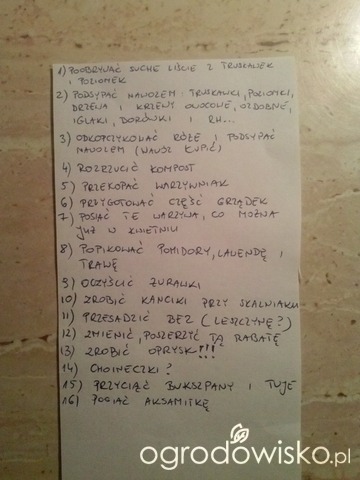 1) POOBRYWAĆ SUCHE LIŚCIE Z TRUSKAWEK
I POZIOMEK
2) PODSYPAĆ NAWOZEM: TRUSKAWKI, POZIOMKI,
DRZEWA I KRZEWY OWOCOWE, OZDOBNE,
IGLAKI, BORÓWKI I RH...
3) ODKOPCZYKOWAĆ RÓŻE I PODSYPAĆ
NAWOZEM (NAWÓZ KUPIĆ)
4) ROZRZUCIĆ KOMPOST
5) PRZEKOPAĆ WARZYWNIAK
6) PRZYGOTOWAĆ CZĘŚĆ GRZĄDEK
7) POSIAĆ TE WARZYWA, CO MOŻNA
JUŻ W KWIETNIU
8) POPIKOWAĆ POMIDORY, LAWENDĘ I
TRAWĘ
9) OCZYŚCIĆ ŻURAWKI
10) ZROBIĆ KANCIKI PRZY SKALNIAKU
11) PRZESADZIĆ BEZ (LESZCZYNĘ?)
12) ZMIENIĆ, POSZERZYĆ TĄ RABATĘ
13) ZROBIĆ OPRYSK!!!
14) CHOINECZKI?
15) PRZYCIĄĆ BUKSZPANY I TUJE
16) POSIAĆ AKSAMITKĘ
ogrodowisko.pl